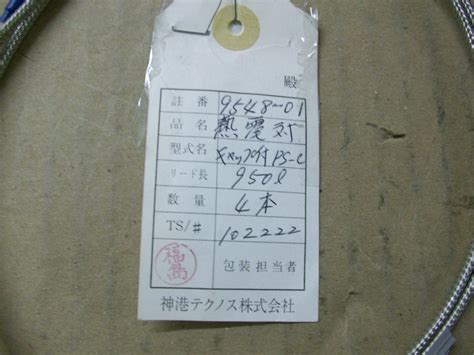 殿
註番 9548-01
品名 熱電対
型式名 キャップ付 PS-C
リード長 950ℓ
数量 4本
TS/# 102222
福島 包装担当者
神港テクノス株式会社